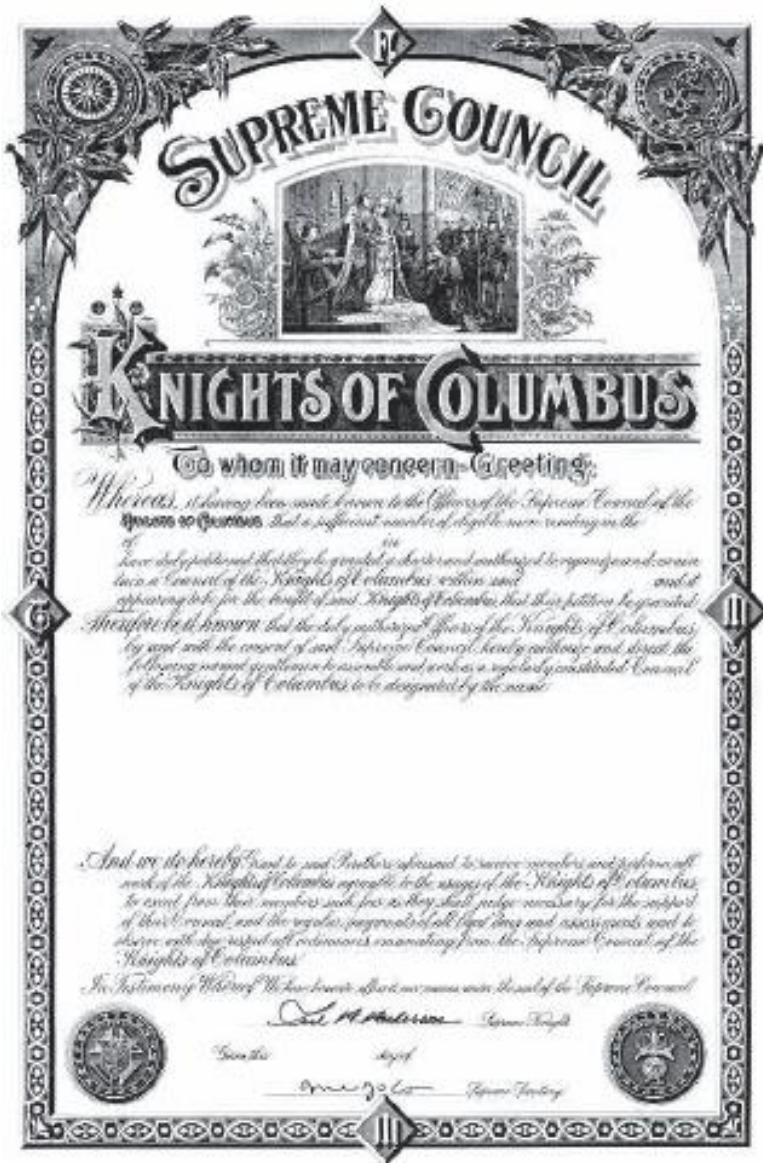 SUPREME COUNCIL
KNIGHTS OF COLUMBUS
To whom it may concern - Greeting:
Whereas, it having been made known to the Officers of the Supreme Council of the
KNIGHTS OF COLUMBUS that a sufficient number of eligible men residing in the
of in
have duly petitioned that they be granted a charter and authorized to organize and
a Council of the Knights of Columbus within said and it
appearing to be for the benefit of said Knights of Columbus that their petition be granted
Therefore be it known that the duly authorized Officers of the Knights of Columbus,
by and with the consent of said Supreme Council, hereby authorize and direct the
following named gentlemen to assemble and work as a regularly constituted Council
of the Knights of Columbus to be designated by the name
And we do hereby Grant to said Brothers aforesaid to receive members and perform all
work of the Knights of Columbus agreeable to the usages of the Knights of Columbus,
to exact from their members such fees as they shall judge necessary for the support
of their Council, and the regular payments of all legal dues and assessments and to
observe with due respect all ordinances emanating from the Supreme Council of the
Knights of Columbus
In Testimony Whereof We have hereunto affixed our names under the seal of the Supreme Council
Supreme Knight
Given this day of
Supreme Secretary